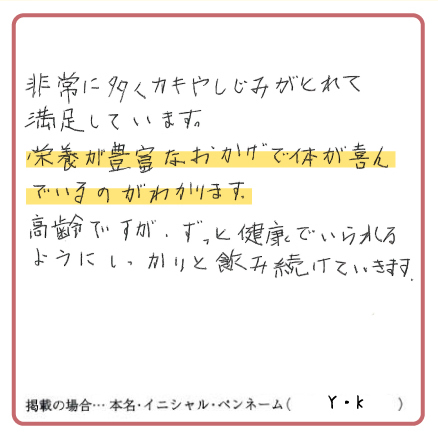 非常に多くカキやしじみがとれて
満足しています。
栄養が豊富なおかげで体が喜ん
でいるのがわかります。
高齢ですが、ずっと健康でいられる
ようにしっかりと飲み続けていきます。
掲載の場合…本名・イニシャル・ペンネーム( Y・k )